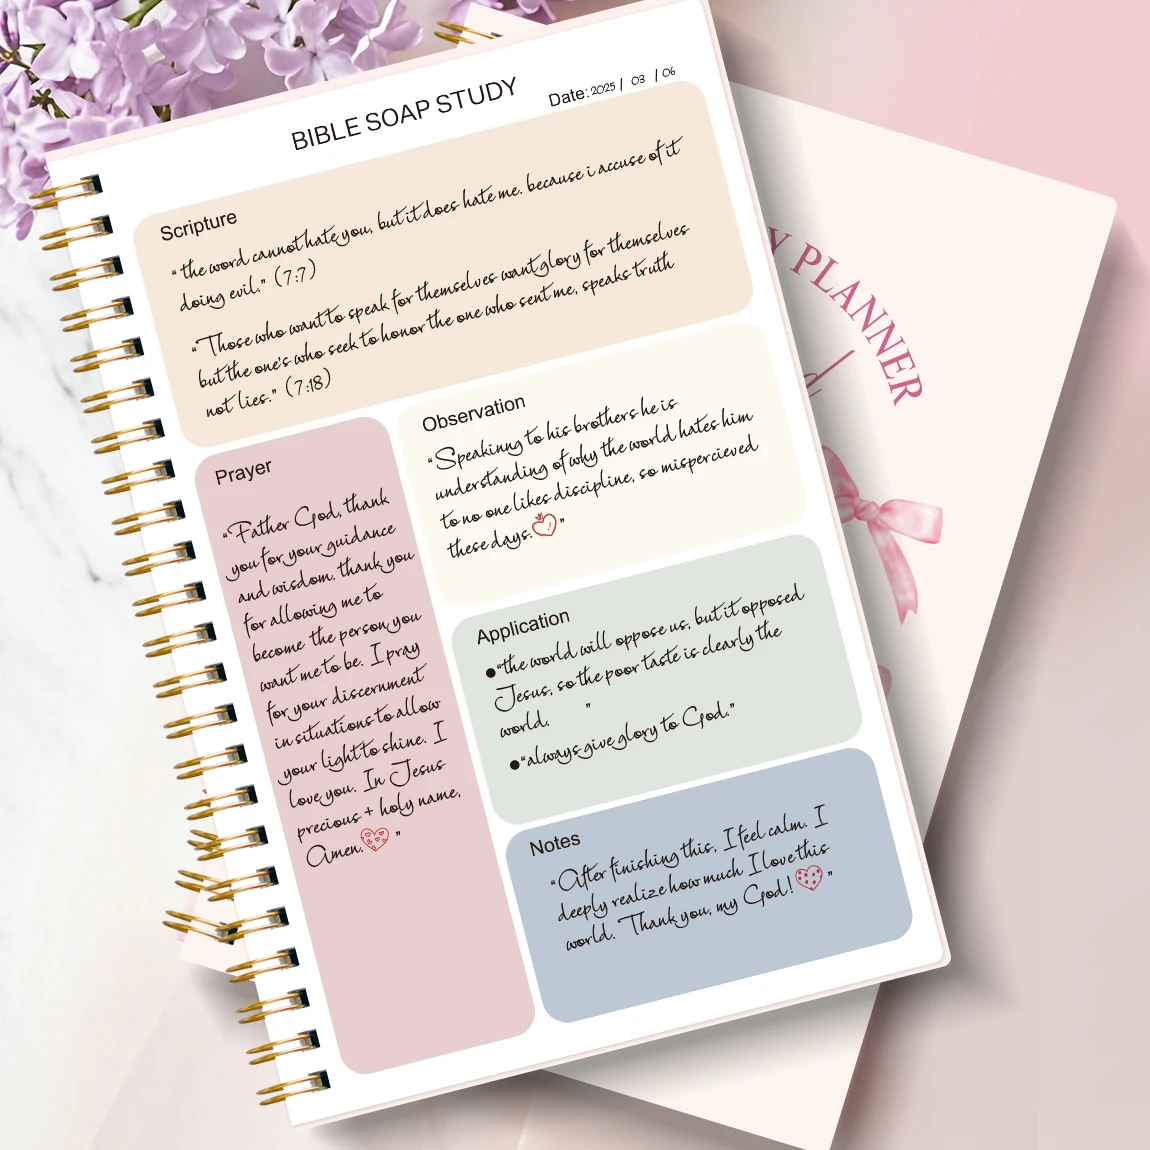 BIBLE SOAP STUDY
Date: 2025 / 03 / 06
Scripture
"the word cannot hate you, but it does hate me. because i accuse of it
doing evil." (7:7)
"Those who want to speak for themselves want glory for themselves
but the one's who seek to honor the one who sent me, speaks truth
not lies." (7:18)
Prayer
"Father God, thank
you for your guidance
and wisdom. thank you
for allowing me to
become the person you
want me to be. I pray
for your discernment
in situations to allow
your light to shine. I
love you. In Jesus
precious + holy name,
Amen. "
Observation
"Speakinng to his brothers he is
understanding of why the world hates him
to no one likes discipline, so mispercieved
these days. "
Application
●"the world will oppose us, but it opposed
Jesus, so the poor taste is clearly the
world. "
●"always give glory to God."
Notes
"After finishing this, I feel calm. I
deeply realize how much I love this
world. Thank you, my God! "
Y PLANNER